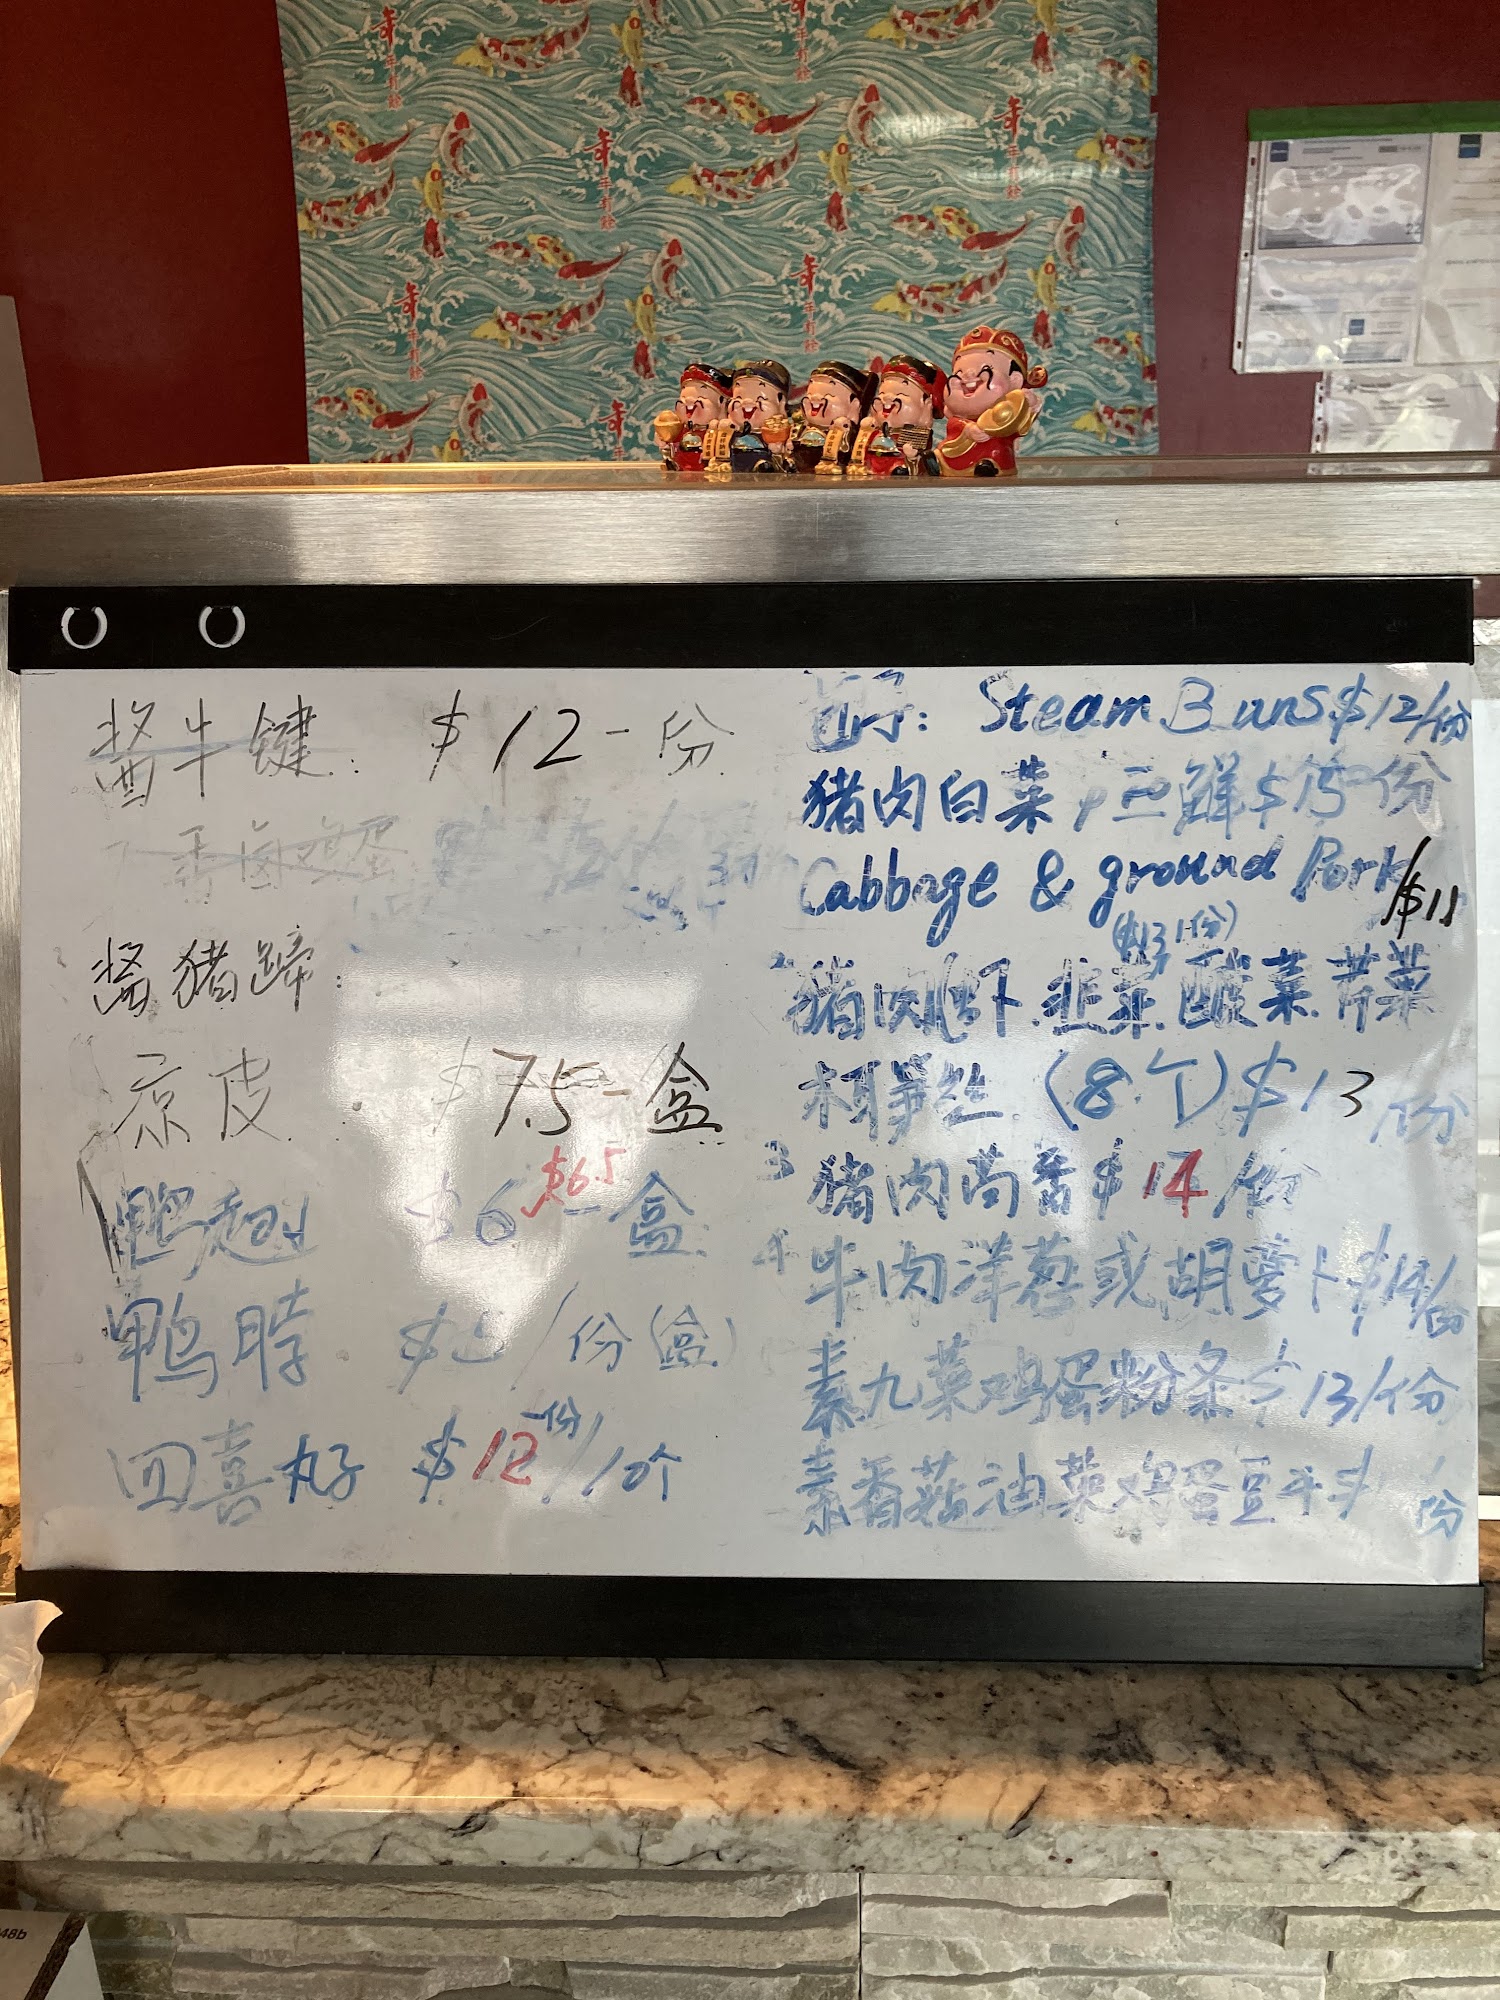 年年有余
酱牛键: $12-份
五香卤鸡蛋
酱猪蹄:
凉皮: $7.5-盒
鸭翅 $6 $6.5 -盒
鸭脖 /份(盒)
四喜丸子 $12 份/10个
包子: Steam Buns $12/份
猪肉白菜 三鲜 $15-份
Cabbage & ground Pork /$11
($13 1份)
2 猪肉虾.韭菜.酸菜.芹菜
笋丝.(8个)$13 份
3 猪肉茴香 $14/份
4 牛肉洋葱或胡萝卜 $14/份
素九菜鸡蛋粉条 $13/份
素香菇油菜鸡蛋豆干 份
48b